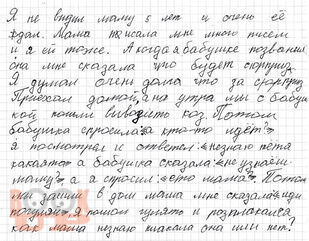 Я не видил маму 5 лет и очень её
ждал. Мама писала мне много писем
и я ей тоже. А когда я бабушке позванил
она мне сказала что будет сюрприз.
Я думал очень долго что за сюрприз
Приехал домой, а на утра мы с бабуш
кой пошли выводить коз. Потом
бабушка спросила: а кто-то идёт?
я посмотрел и ответел незнаю тётя
какаято а бабушка сказала не узнаёш
маму? а я спросил: ето мама? Потом
мы зашли в дом мама мне сказала иди
погуляй я пошол гулять и розплакался
как мама незнаю плакала она или нет?